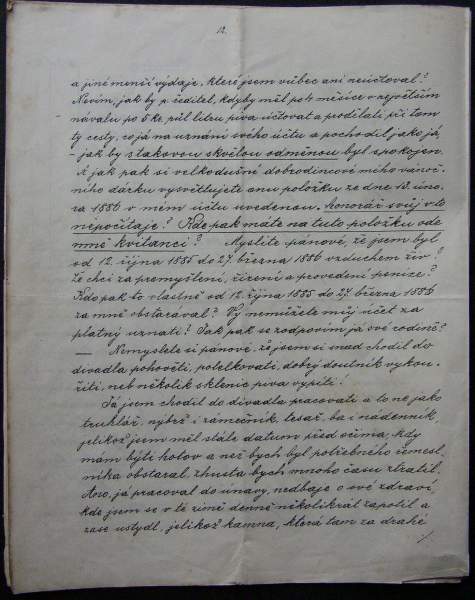 12.
a jiné menší výdaje, které jsem vůbec ani neúčtoval?
Nevím, jak by p. ředitel, kdyby měl po 4 měsíce v největším
návalu po 5 kr. půl litru piva účtovat a podělati při tom
ty cesty, co já na uznání svého účtu a pochodil jako já,
– jak by s takovou skvělou odměnou byl spokojen.
A jak pak si velkodušné dobrodince mého vánoč-
ního dárku vysvětlujete onu položku ze dne 13. úno-
ra 1886 v mém účtu uvedenou. Honorář svůj v to
nepočítaje? Kde pak máte na tuto položku ode
mně kvitanci? Myslíte pánové, že jsem byl
od 12. října 1885 do 27. března 1886 vzduchem živ?
Že chci za přemýšlení, řízení a provedení peníze?
Kdo pak to vlastně od 12. října 1885 do 27. března 1886
za mně obstarával? Vy nemůžete můj účet za
platný uznati? Jak pak se zodpovím já své rodině?
— Nemyslete si pánové, že jsem si snad chodil do
divadla pohověti, potelkovati, dobrý doutník vykou-
řiti, neb několik sklenic piva vypíti!
Já jsem chodil do divadla pracovati a to ne jako
truhlář, nýbrž i zámečník, tesař, ba i nádenník,
jelikož jsem měl stále datum před očima, kdy
mám býti hotov a než bych byl potřebného řemesl-
níka obstaral, zhusta bych mnoho času ztratil.
Ano, já pracoval do únavy, nedbaje o své zdraví,
kde jsem se v té zimě denně několikrát zapotil a
zase ustydl, jelikož kamna, která tam za drahé
./.